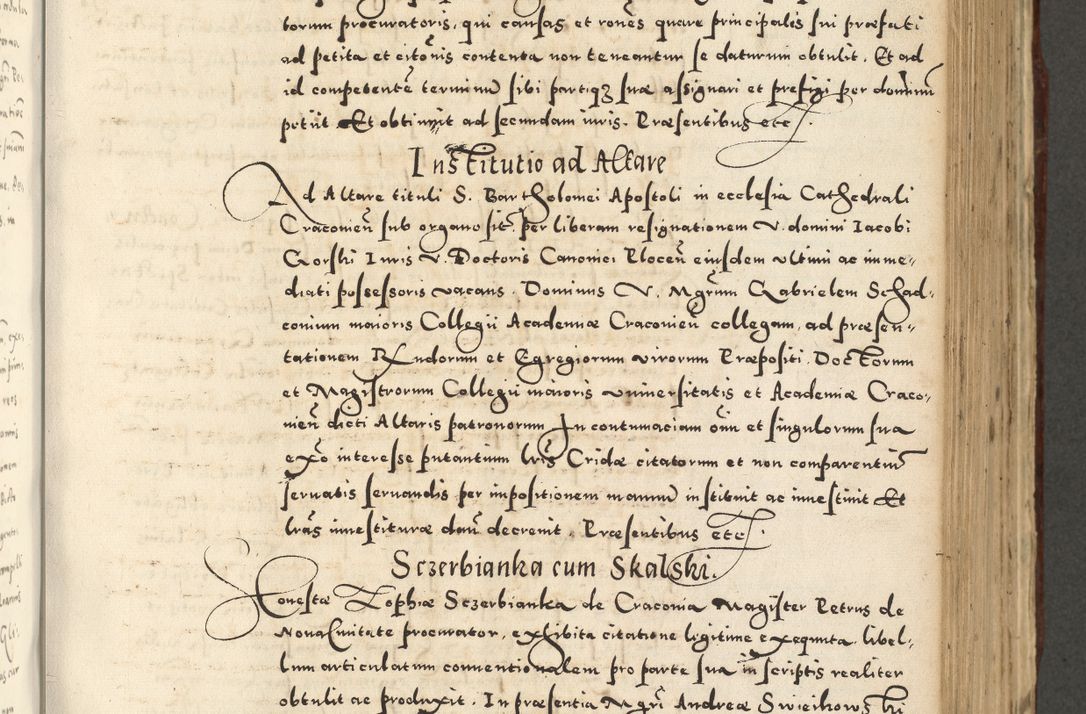 borum procuratoris, qui causas et rones quare principalis sui præfati
ad petita et citonis contenta non teneantur se daturum obtulit. Et ad
id competentē terminū sibi partiqꝫ suæ assignari et prefigi per dominū
petiit Et obtinuit ad secundam iuris. Præsentibus etc.
Institutio ad Altare
Ad Altare tituli S. Bartholomei Apostoli in ecclesia Cathedrali
Cracovieñ sub organo sit. per liberam resignationem V. domini Iacobi
Gorski Iuris V. Doctoris CanoniciPloceñ eiusdem ultimi ac imme-
diati possessoris vacans. Dominus V. Mgrum Gabrielem Schad-
conium maioris Collegii Academiæ Cracovieñ collegam, ad præsen-
tationem Rndorum et Egregiorum virorum Præpositi. Doctorum
et Magistrorum Collegii maioris universitatis et Academiæ Craco-
vieñ dicti Altaris patronorum In contumaciam oim et singulorum sua
exo interesse putantium lris Cridæ citatorum et non comparentiū
servatis servandis per impositionem manuū instituit ac investivit Et
lras investituræ dan̄ decrevit. Præsentibus etc.
Sczerbianka cum Skalski.
Honestæ Zophiæ Sczerbianka de Cracovia Magister Petrus de
Nova Civitate procurator, exhibita citatione legitime exequuta. libel-
lum articulatum conventionalem pro parte sua in scriptis realiter
obtulit ac produxit. In præsentia Mgri Andreæ Swieikowski